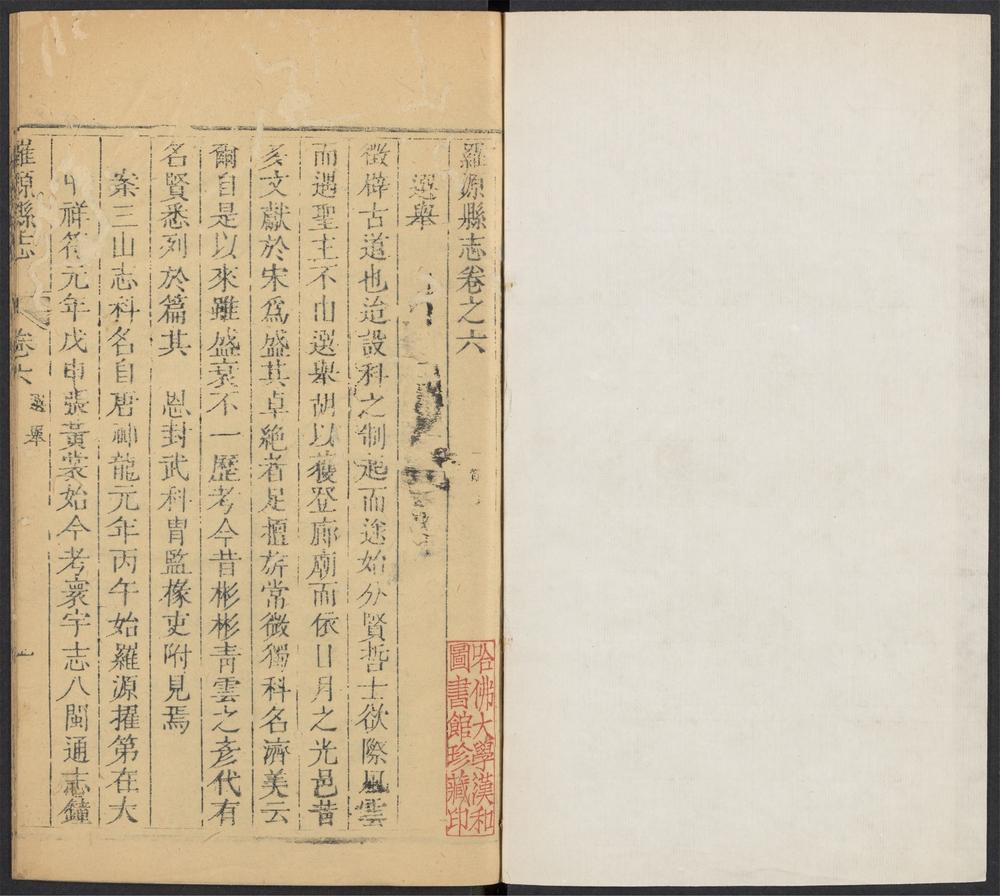 羅源縣志卷之六
選舉
徵辟古道也迨設科之制起而途始分賢哲士欲際風雲
而遇聖主不由選舉胡以獲登廊廟而依日月之光邑昔
多文獻於宋為盛其卓絶者足擅旂常微獨科名濟美云
爾自是以來雖盛衰不一歷考今昔彬彬青雲之彥代有
名賢悉列於篇其　恩封武科胄監椽吏附見焉
案三山志科名自唐神龍元年丙午始羅源擢第在大
中祥符元年戊申張黃裳始今考寰宇志八閩通志鐘
羅源縣志　卷六　選舉　一
哈佛大學漢和
圖書館珍藏印